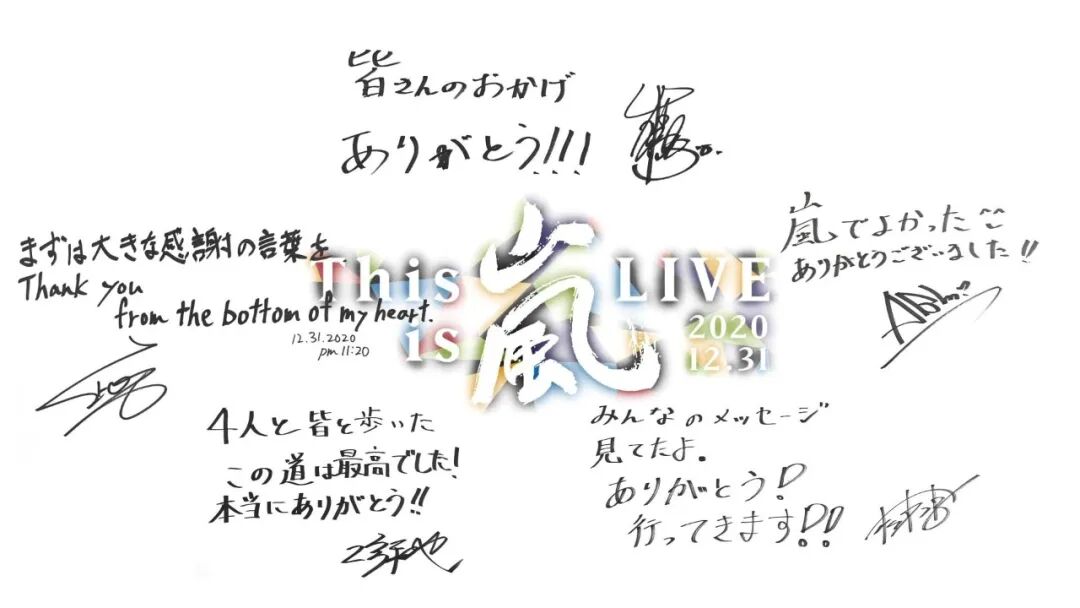 皆さんのおかげ
ありがとう!!!
まずは大きな感謝の言葉を
Thank you
from the bottom of my heart.
12.31.2020
pm 11:20
嵐でよかった
ありがとうございました!!
This is
嵐
LIVE
2020
12.31
4人と皆と歩いた
この道は最高でした!
本当にありがとう!!
みんなのメッセージ
見てたよ。
ありがとう!
行ってきます!!